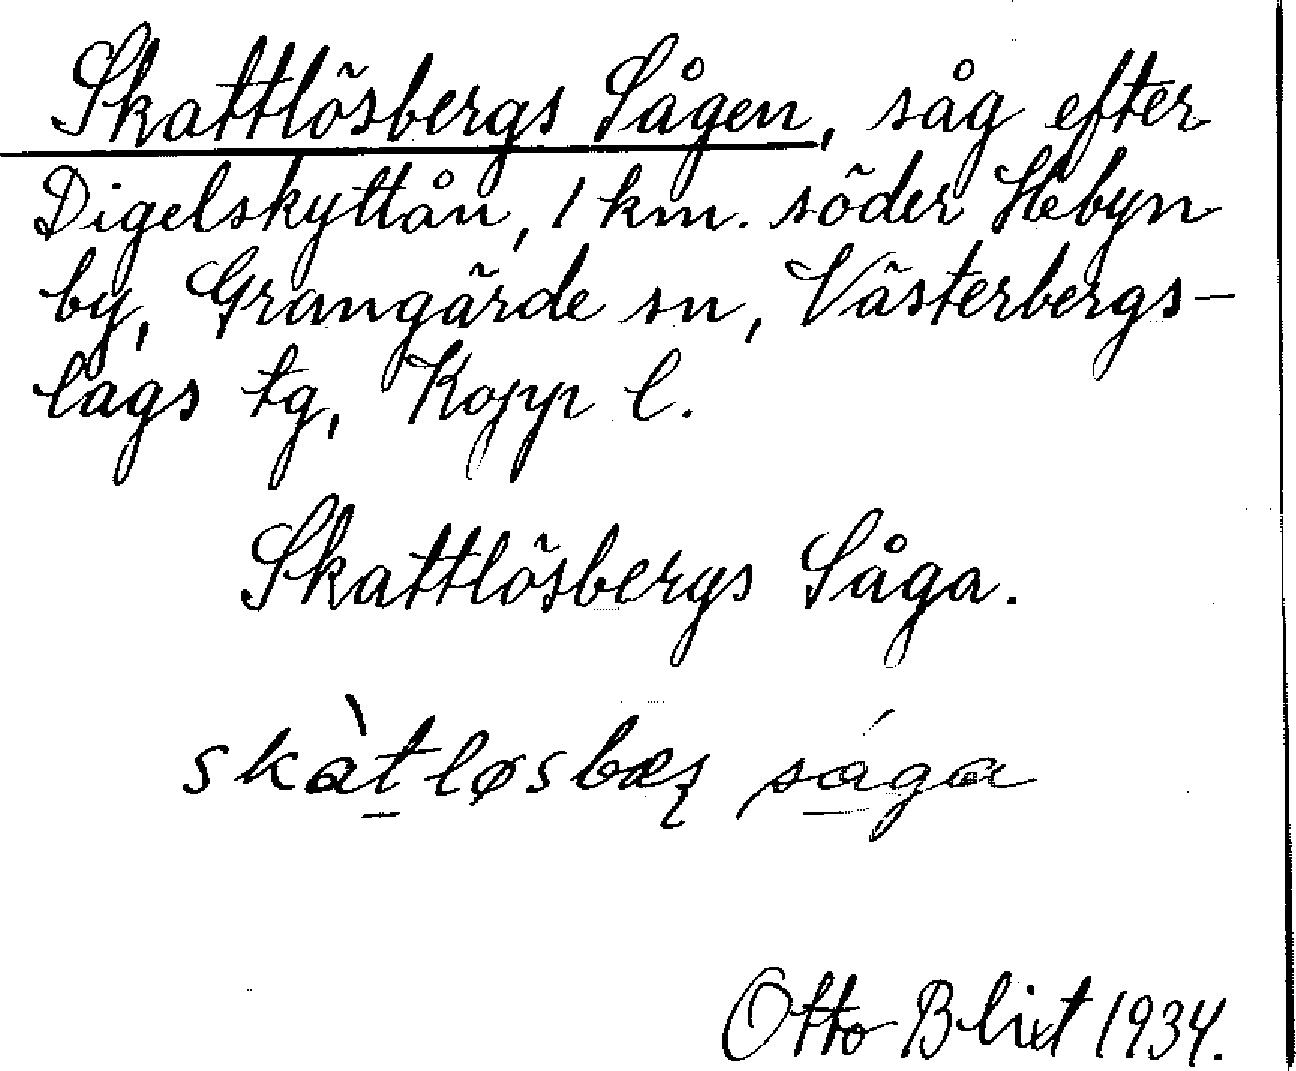 Skattlösbergs Sågen, såg efter
Digelskyttån, 1 km. söder Hebyn
by, Grangärde sn, Västerbergs-
lags tg, Kopp l.
Skattlösbergs Såga.
skàtløsbæʂ sága
Otto Blixt 1934.